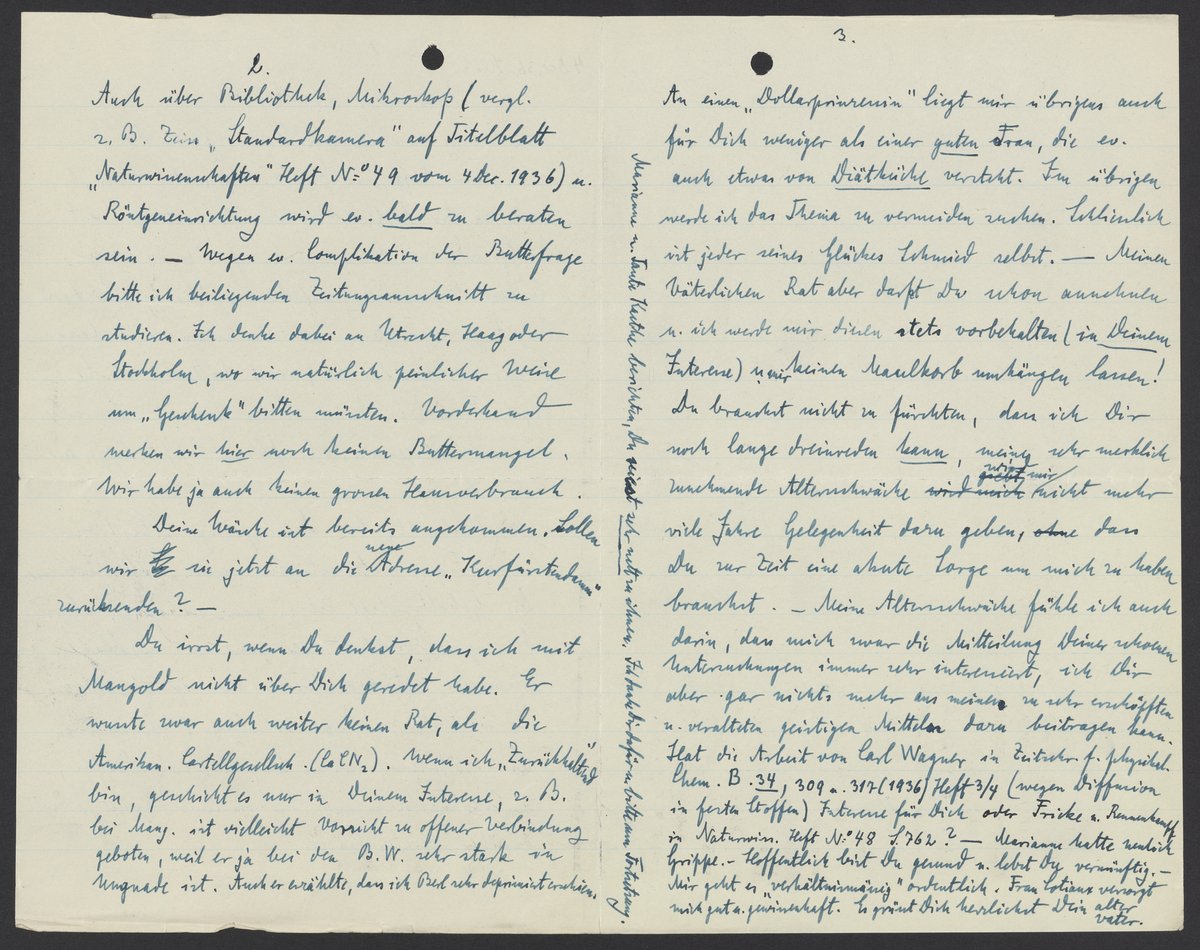 2.
Auch über Bibliothek, Mikroskop (vergl.
z. B. Zeiss „Standardkamera" auf Titelblatt
„Naturwissenschaften" Heft No 49 vom 4 Dec. 1936) u.
Röntgeneinrichtung wird ev. bald zu beraten
sein. — Wegen ev. Complikation der Butterfrage
bitte ich beiliegenden Zeitungsausschnitt zu
studieren. Ich denke dabei an Utrecht, Haag oder
Stockholm, wo wir natürlich peinlicher Weise
um „Geschenk" bitten müssten. Vorderhand
merken wir hier noch keinen Buttermangel.
Wir habe ja auch keinen grossen Hausverbrauch.
Deine Wäsche ist bereits angekommen. Sollen
wir sie jetzt an die neue Adresse „Kurfürstendamm"
zurücksenden? —
Du irrst, wenn Du denkst, dass ich mit
Mangold nicht über Dich geredet habe. Er
wusste zwar auch weiter keinen Rat, als die
Amerikan. Cartellgesellsch. (CaCN2). Wenn ich „Zurückhaltend"
bin, geschieht es nur in Deinem Interesse, z. B.
bei Mang. ist vielleicht Vorsicht zu offener Verbindung
geboten, weil er ja bei den B.W. sehr stark in
Ungnade ist. Auch er erzählte, dass ich Berl sehr deprimiert erschien.
Marianne u. Tante Käthe berichten, Du seiest sehr nett zu ihnen. Ich danke Dir dafür u. bitte um Fortsetzung.
3.
An einen „Dollarprinzessin" liegt mir übrigens auch
für Dich weniger als einer guten Frau, die ev.
auch etwas von Diätküche versteht. Im übrigen
werde ich das Thema zu vermeiden suchen. Schliesslich
ist jeder seines Glückes Schmied selbst. — Meinen
Väterlichen Rat aber darfst Du schon annehmen
u. ich werde mir diesen stets vorbehalten (in Deinem
Interesse) u. mir keinen Maulkorb umhängen lassen!
Du brauchst nicht zu fürchten, dass ich Dir
noch lange dreinreden kann, meine sehr merklich
zunehmende Altersschwäche wird mir nicht mehr
viele Jahre Gelegenheit dazu geben, ohne dass
Du zur Zeit eine akute Sorge um mich zu haben
brauchst. — Meine Altersschwäche fühle ich auch
darin, dass mich zwar die Mitteilung Deiner schönen
Untersuchungen immer sehr interessiert, ich Dir
aber gar nichts mehr aus meinen zu sehr erschöpften
u. veralteten geistigen Mitteln dazu beitragen kann.
Hat die Arbeit von Carl Wagner in Zeitschr. f. physikal.
Chem. B. 34, 309 u. 317 (1936) Heft 3/4 (wegen Diffusion
in festen Stoffen) Interesse für Dich oder Fricke u. Rennenkampf
in Naturwiss. Heft No 48 S. 762? — Marianne hatte neulich
Grippe. — Hoffentlich bist Du gesund u. lebst Du vernünftig. —
Mir geht es „verhältnismässig" ordentlich. Frau Lotiaux versorgt
mich gut u. gewissenhaft. Es grüsst Dich herzlichst Dein alter
Vater.